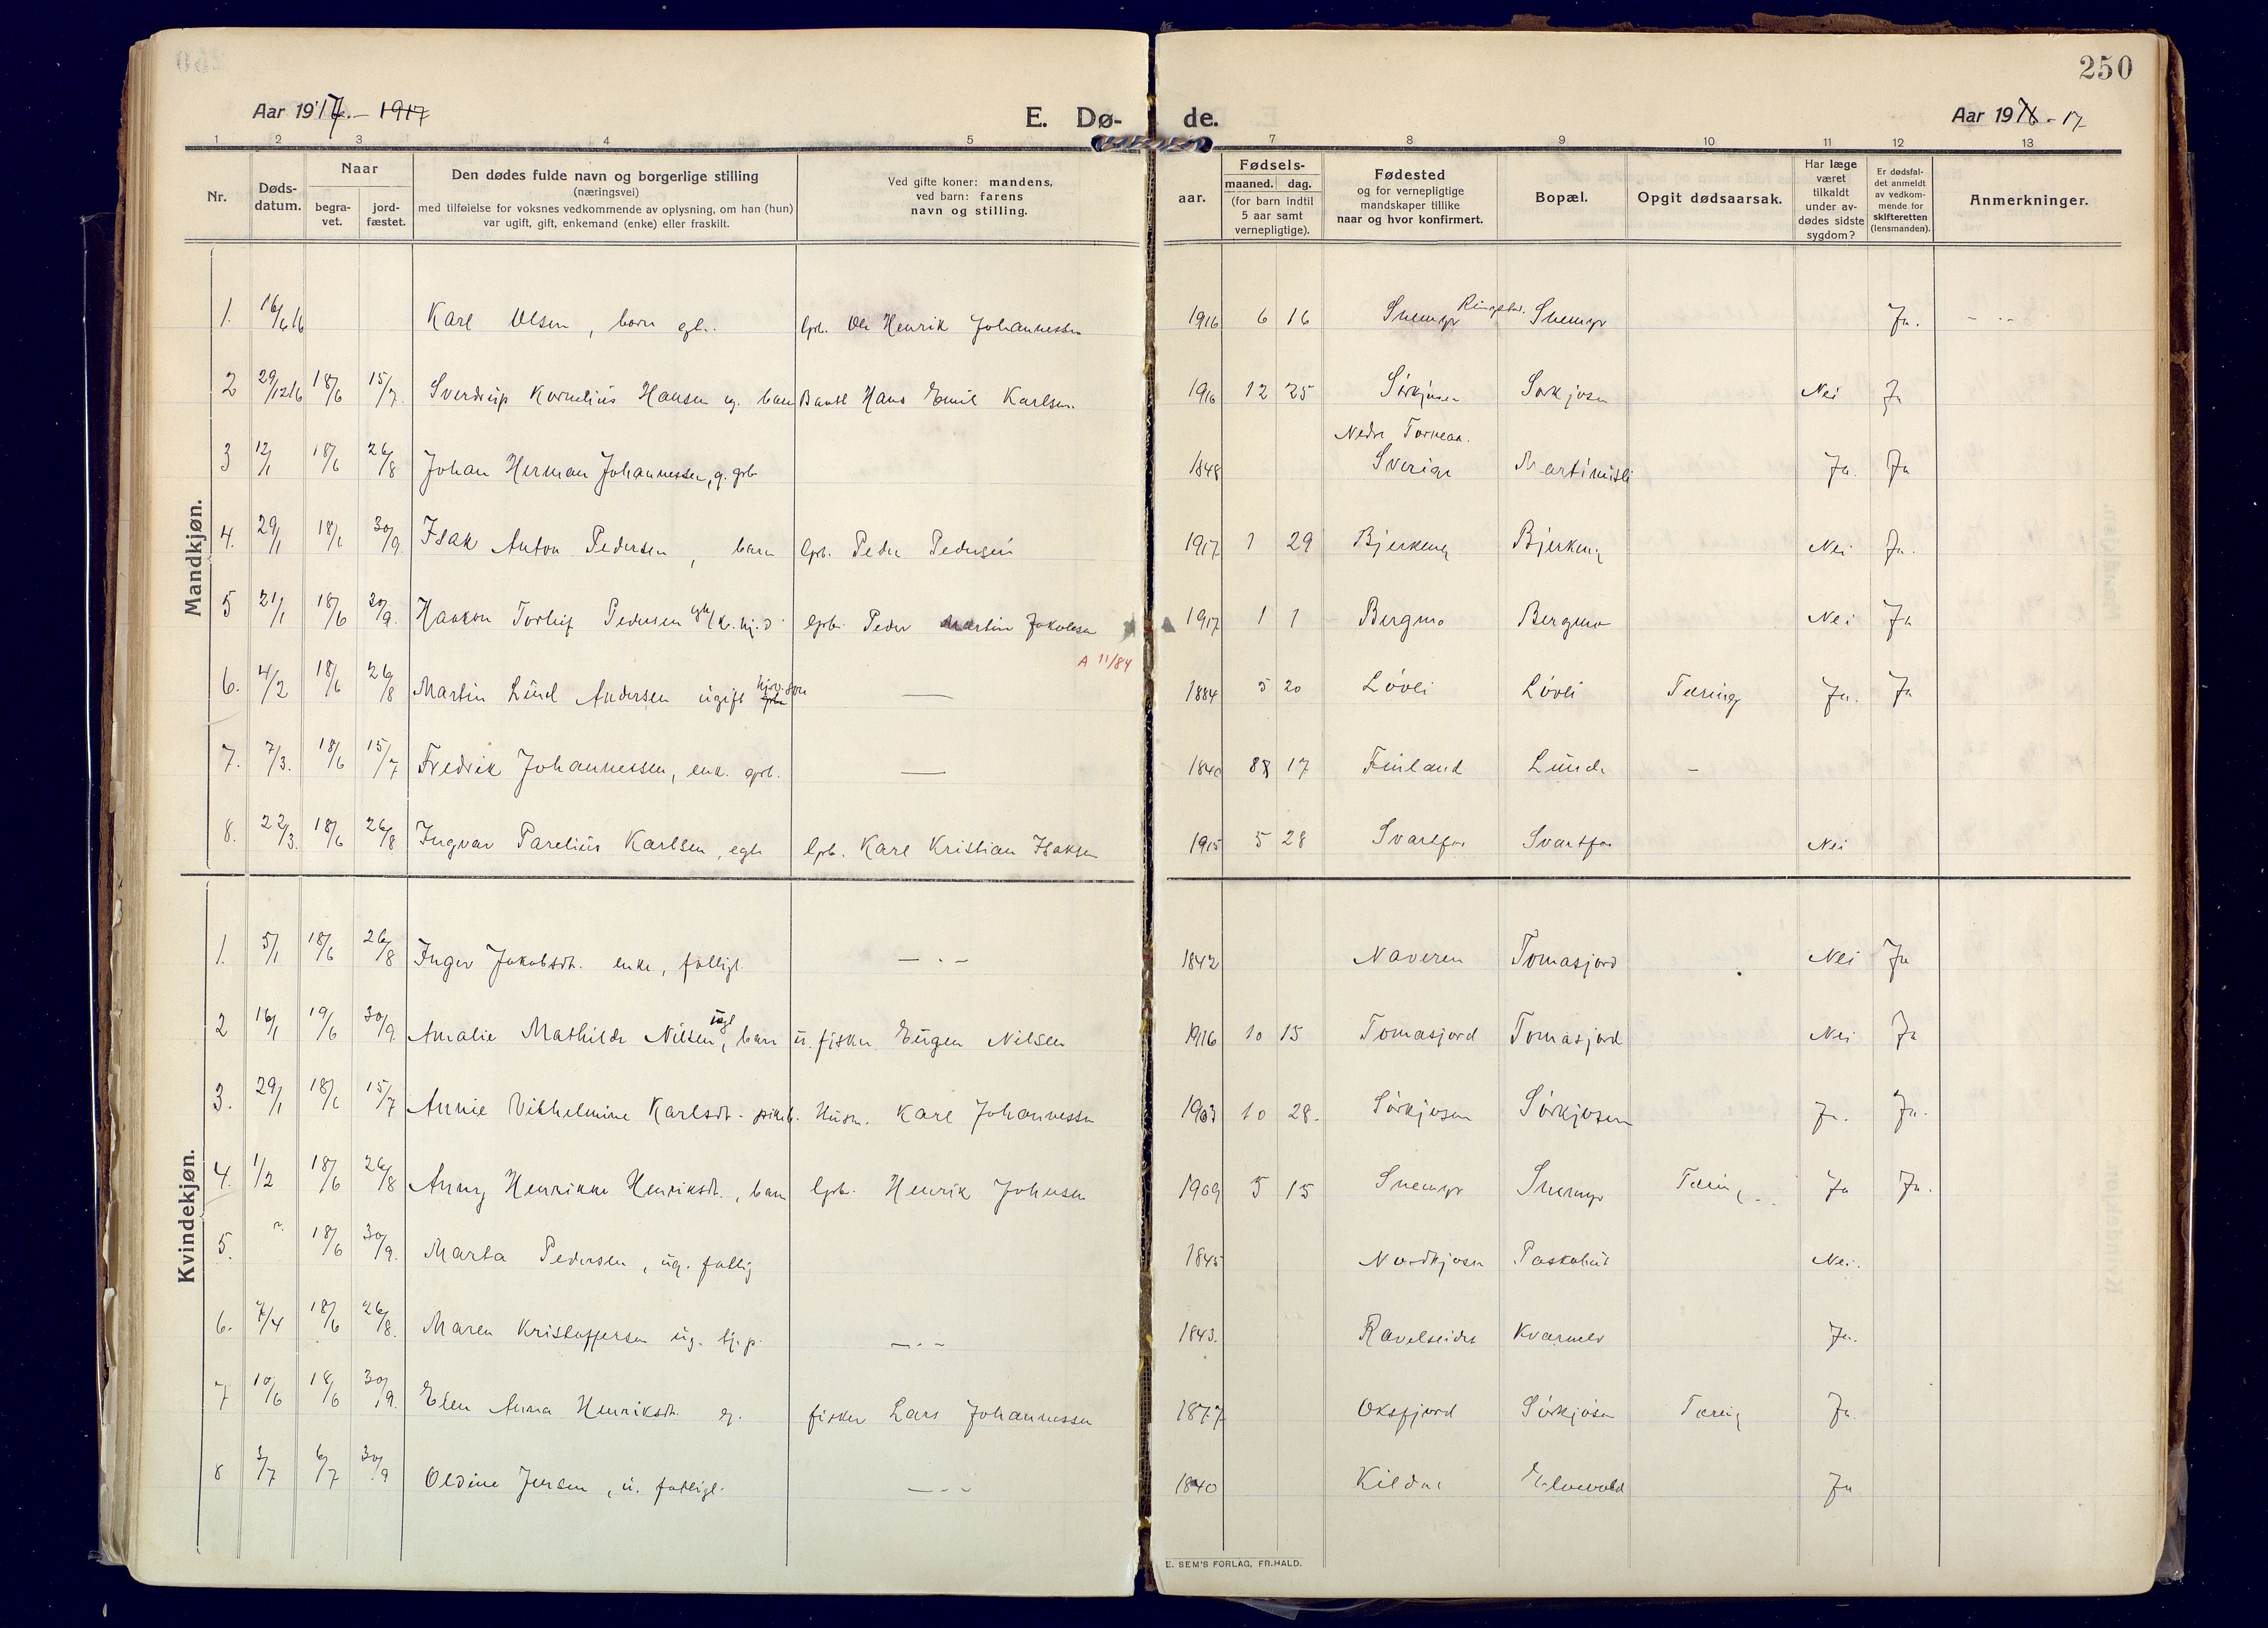 250
Aar 1917. - 1917
E. Dø-
de.
Aar 1916 - 17
1 2 3 4 5
7 8 9 10 11 12 13
Nr.
Døds-
datum.
Naar
begra-
vet.
jord-
fæstet.
Den dødes fulde navn og borgerlige stilling
(næringsvei)
med tilføielse for voksnes vedkommende av oplysning, om han (hun)
var ugift, gift, enkemand (enke) eller fraskilt.
Ved gifte koner: mandens,
ved barn: farens
navn og stilling.
Fødsels-
aar.
maaned.
dag.
(for barn indtil
5 aar samt
vernepligtige).
Fødested
og for vernepligtige
mandskaper tillike
naar og hvor konfirmert.
Bopæl.
Opgit dødsaarsak.
Har læge
været
tilkaldt
under av-
dødes sidste
sygdom?
Er dødsfal-
det anmeldt
av vedkom-
mende for
skifteretten
(lensmanden).
Anmerkninger.
Mandkjøn.
1. 16/6 16 Karl Olsen, barn egb. Ole Henrik Johannessen 1916 6 16 Snemyr Snemyr Ja. - --
2 29/12 16 18/6 15/7. Sverdrup Kornelius Hansen barn Hans Emil Karlsen. 1916 12 25 Sørkjosen Sørkjosen Nei Ja
3 12/1 18/6 26/8 Johan Herman Johannessen, g. grb 1848 Nedre Torneaa. Sverige Ja. Ja
4. 29/1 18/6 30/9. Isak Anton Pedersen, barn Peder Pedersen 1917 1 29 Bjerkeng Bjerkeng Nei Ja.
5 21/1 18/6 30/9. Haakon Torleif Pedersen Peder Martin Jakobsen 1917 1 1 Bergmo Bergmo Nei Ja
A 11/84
6. 4/2 18/6 26/8 Martin Lind Andersen ugift — 1884 5 20 Løvli Løvli Tæring Ja. Ja
7. 7/3. 18/6 15/7 Fredrik Johannessen, enk. grb. — 1840 8 17 Finland Lunde -
8. 22/3. 18/6 26/8 Ingvar Parelius Karlsen, egte Karl Kristian Isaksen 1915 5 28 Svartfos Svartfos Nei
Kvindekjøn.
1. 5/1 18/6 26/8 Inger Jakobsdt. enke, fattigl. - . - 1842 Naveren Tomasjord Nei Ja
2 16/1 19/6 30/9. Amalie Mathilde Nilsen, barn u. fisker Eugen Nilsen 1916 10 15 Tomasjord Tomasjord Nei Ja
3. 29/1 18/6 15/7 Annie Vilhelmine Karlsdt. Husm. Karl Johannessen 1903 10 28. Sørkjosen Sørkjosen Ja. Ja.
4. 1/2 18/6 26/8 Anny Henrikke Henriksdt., barn Henrik Johnsen 1909 5 15 Snemyr Snemyr Tæring Ja Ja.
5. 18/6 30/9. Marta Pedersen, ug. fattig 1845 Nordkjosen Nei.
6. 7/4 18/6 26/8. Maren Kristoffersen ug. tj.p. - . - 1843. Ravelseidet Kvænnelv Ja.
7 10/6 18/6 30/9. Elen Anna Henriksdt. g. fisker Lars Johannessen 1877 Oksfjord Sørkjosen Tæring Ja.
8 3/7 6/7 30/9 Oldine Jensen, u. fattigl. - - - 1840 Kildal Elvevold Ja
E. SEM'S FORLAG, FR.HALD.